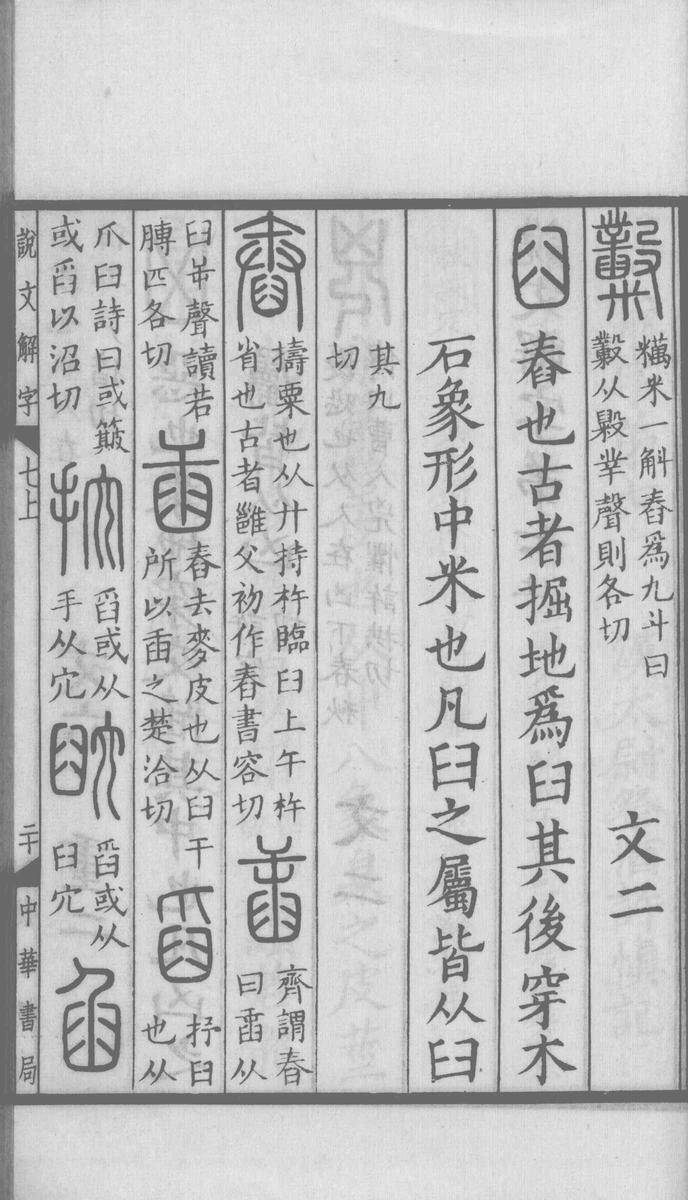 糳
糲米一斛舂爲九斗曰
糳从毇丵聲則各切
文二
臼舂也古者掘地爲臼其後穿木
石象形中米也凡臼之屬皆从臼
其九
切
舂
擣粟也从廾持杵臨臼上午杵
省也古者雝父初作舂書容切
𦥻
齊謂舂
曰𦥻从
臼屰聲讀若
膊匹各切
臿
舂去麥皮也从臼干
所以臿之楚洽切
舀
抒臼
也从
爪臼詩曰或簸
或舀以沼切
抭
舀或从
手从宂
舀或从
臼宂
臽
說文解字
七上
二十
中華書局